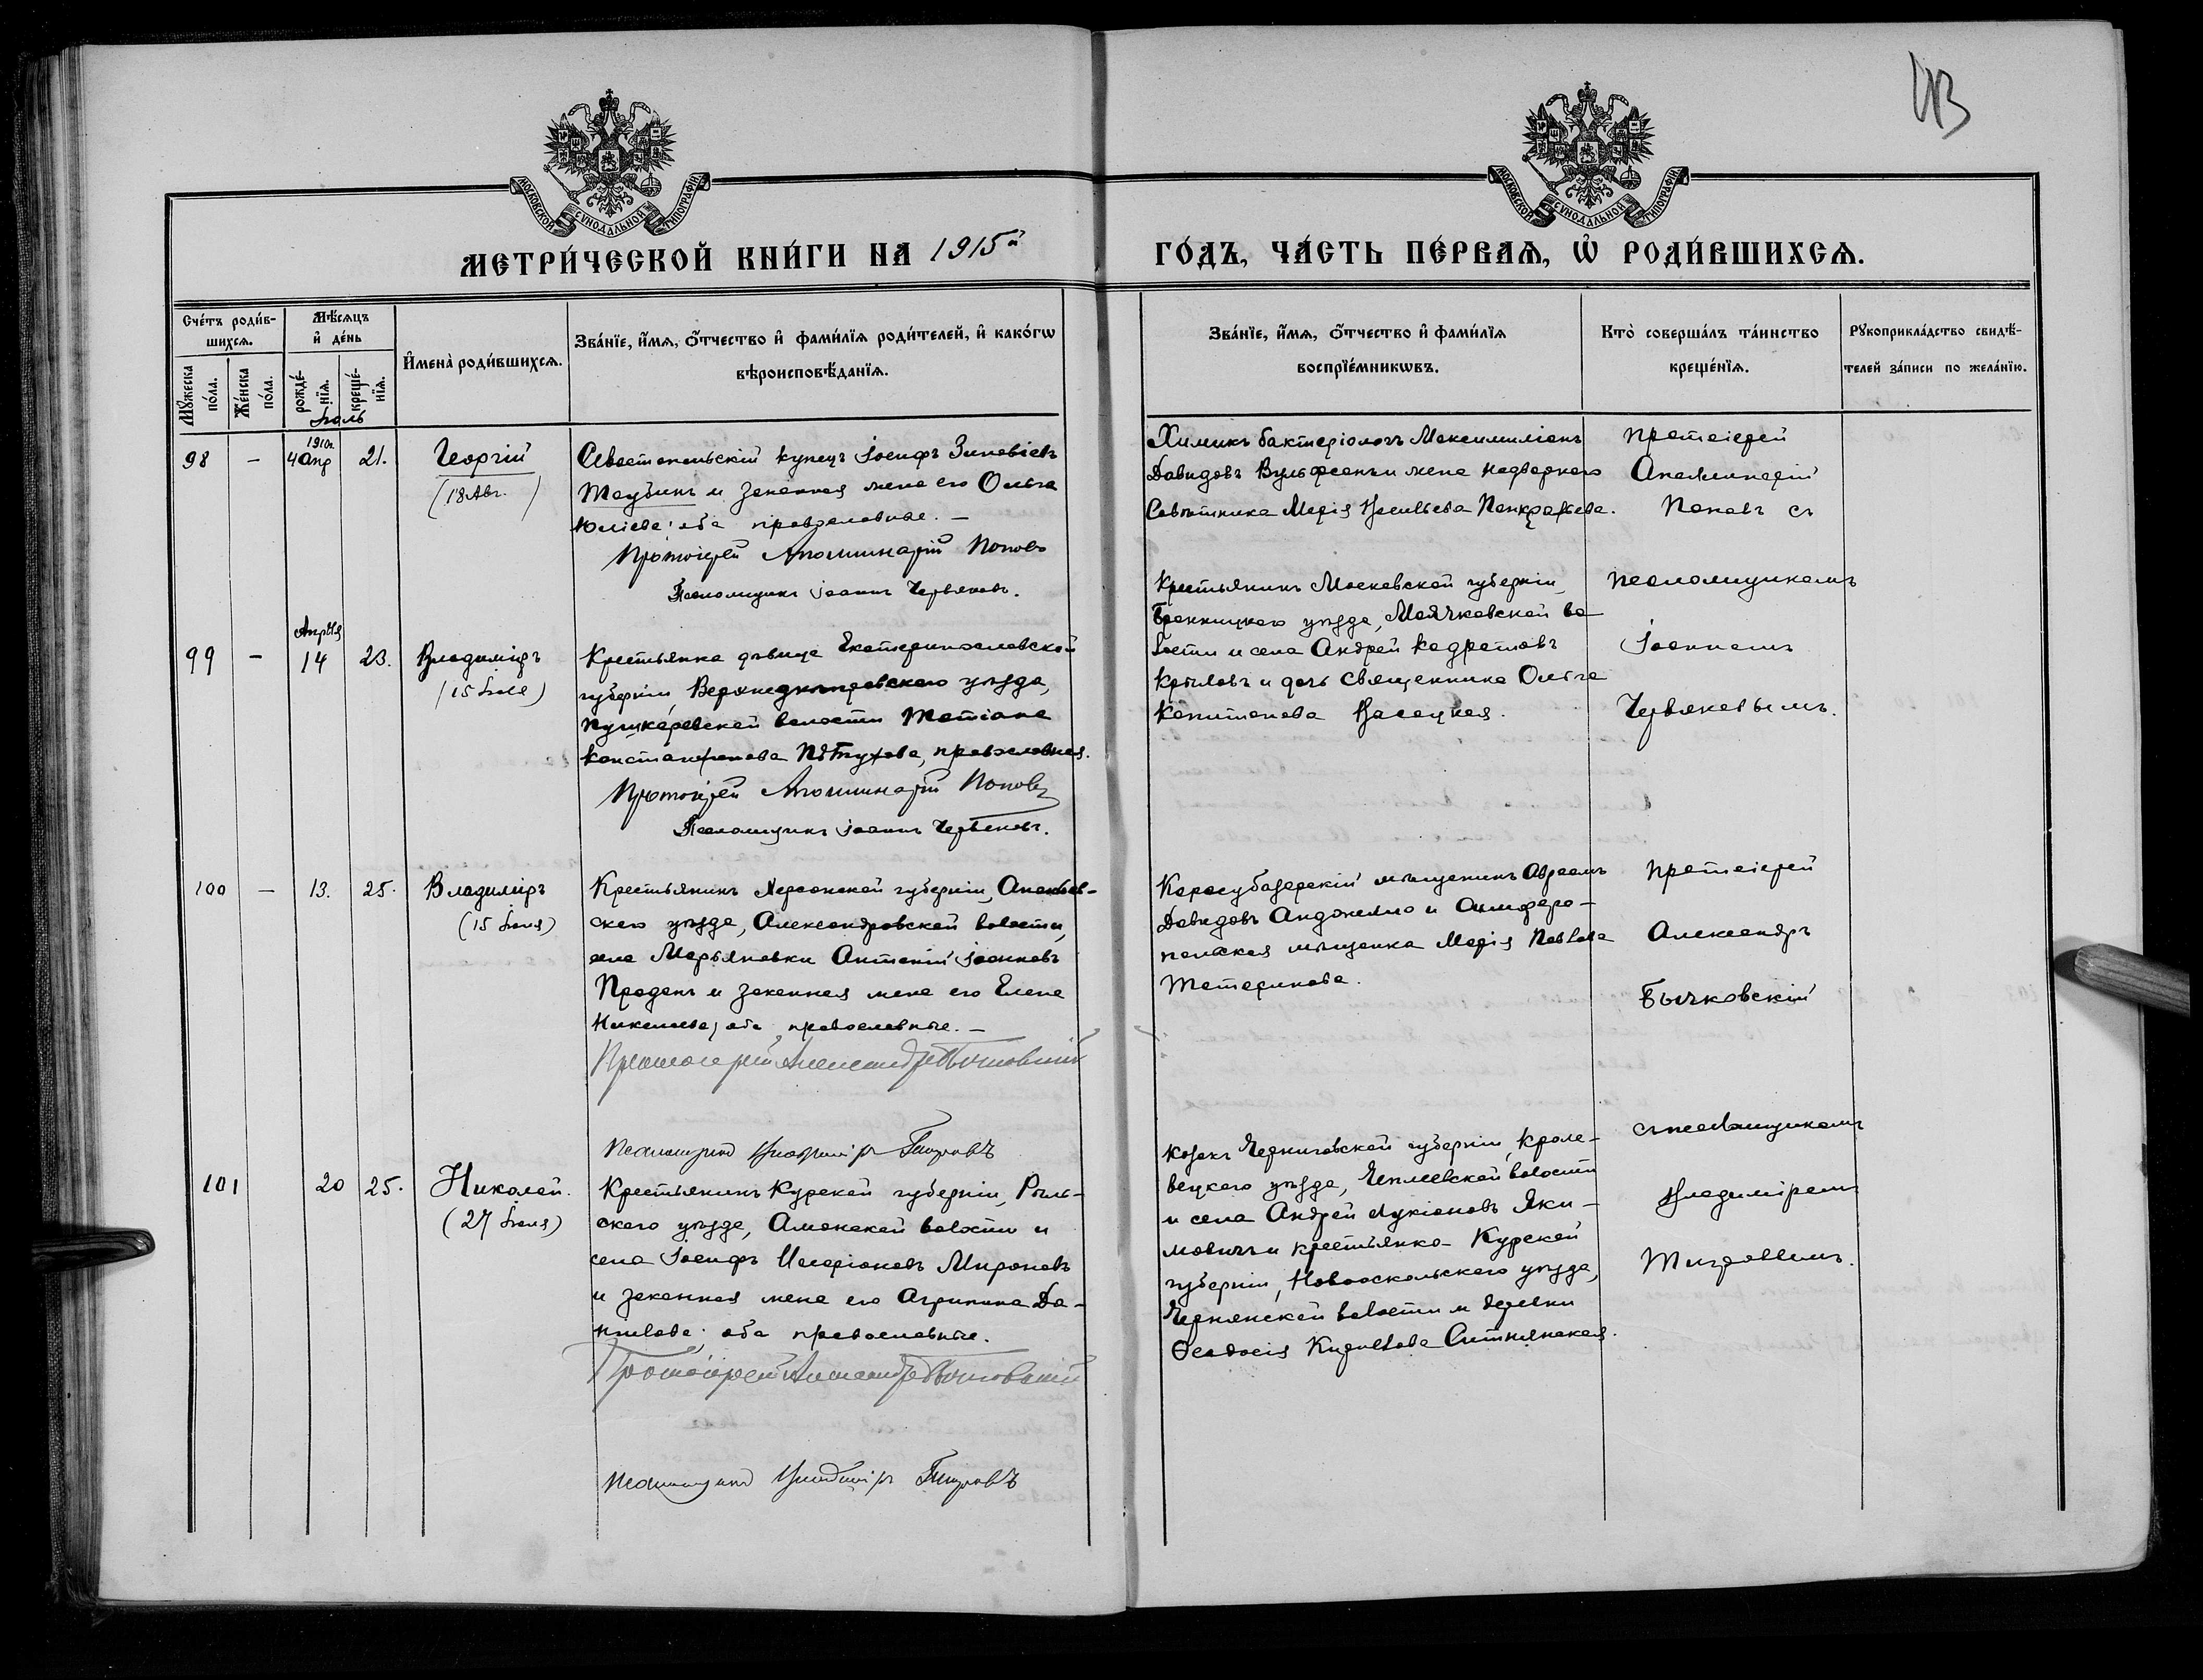 43
МОСКОВСКОЙ СѴНОДАЛЬНОЙ ТИПОГРАФІИ
МОСКОВСКОЙ СѴНОДАЛЬНОЙ ТИПОГРАФІИ
МЕТРИ́ЧЕСКОЙ КНИ́ГИ НА 1915й ГО́ДЪ, ЧА́СТЬ ПЕ́РВАѦ, Ѡ҆ РОДИ́ВШИХСѦ.
Сче́тъ роди́в-
шихсѧ.
Мꙋ́жеска по́ла.
Же́нска по́ла.
Мѣ́сѧцъ
и҆ де́нь
рожде́-
нїѧ.
креще́-
нїѧ.
И҆мена̀ роди́вшихсѧ.
Зва́нїе, и҆́мѧ, ѻ҆́тчество и҆ фами́лїѧ роди́телей, и҆ како́гѡ
вѣроисповѣ́данїѧ.
Зва́нїе, и҆́мѧ, ѻ҆́тчество и҆ фами́лїѧ
воспрїе́мникѡвъ.
Кто̀ соверша́лъ та́инство
креще́нїѧ.
Рꙋкоприкла́дство свидѣ́-
телей за́писи по жела́нїю.
98
–
1910г.
4 Апр
21.
Георгій
(18 Авг.)
Севастопольскій купецъ Іосифъ Зиновіевъ
Таубинъ и законная жена его Ольга
Юліева; оба православные. –
Протоіерей Аполлинарій Поповъ
Псаломщикъ Іоаннъ Червяковъ.
Химикъ бактеріологъ Максимиліанъ
Давидовъ Вульфсонъ и жена Надворнаго
Совѣтника Марія Васильева Панкратьева.
Протоіерей
Аполлинарій
Поповъ съ
псаломщикомъ
Іоанномъ
Червяковымъ.
99
–
Апрѣля
14
23.
Владиміръ
(15 Іюля)
Крестьянка дѣвица Екатеринославской
губерніи, Верхнеднѣпровскаго уѣзда,
Пушкаревской волости Татіана
Константинова Пѣтухова, православная.
Протоіерей Аполлинарій Поповъ
Псаломщикъ Іоаннъ Червяковъ.
Крестьянинъ Московской губерніи,
Бронницкаго уѣзда, Мячковской во
лости и села Андрей Кодратовъ
Крыловъ и дочь священника Ольга
Капитонова Васецкая.
100
–
13.
25.
Владиміръ
(15 Іюля)
Крестьянинъ Херсонской губерніи, Ананьев-
скаго уѣзда, Александровской волости,
села Марьяновки Антоній Іоанновъ
Проданъ и законная жена его Елена
Николаева; оба православные. –
Протоіерей Александръ Бычковскій
Псаломщикъ Владиміръ Тигровъ
Карасубазарскій мѣщанинъ Авраамъ
Давидовъ Анджелло и Симферо-
польская мѣщанка Марія Павлова
Татаринова.
Протоіерей
Александръ
Бычковскій
съ псаломщикомъ
Владиміромъ
Тигровымъ.
101
20
25.
Николай.
(27 Іюля)
Крестьянинъ Курской губерніи, Рыль-
скаго уѣзда, Амонской волости и
села Іосифъ Иларіоновъ Мироновъ
и законная жена его Агрипина Да-
нилова; оба православные.
Протоіерей Александръ Бычковскій
Псаломщикъ Владиміръ Тигровъ
Козакъ Черниговской губерніи, Кроле-
вецкаго уѣзда, Чеплеевской волости
и села Андрей Лукіановъ Яки-
мовичъ и крестьянка Курской
губерніи, Новооскольскаго уѣзда,
Чернянской волости и деревни
Ѳеодосія Кириллова Ситнянская.